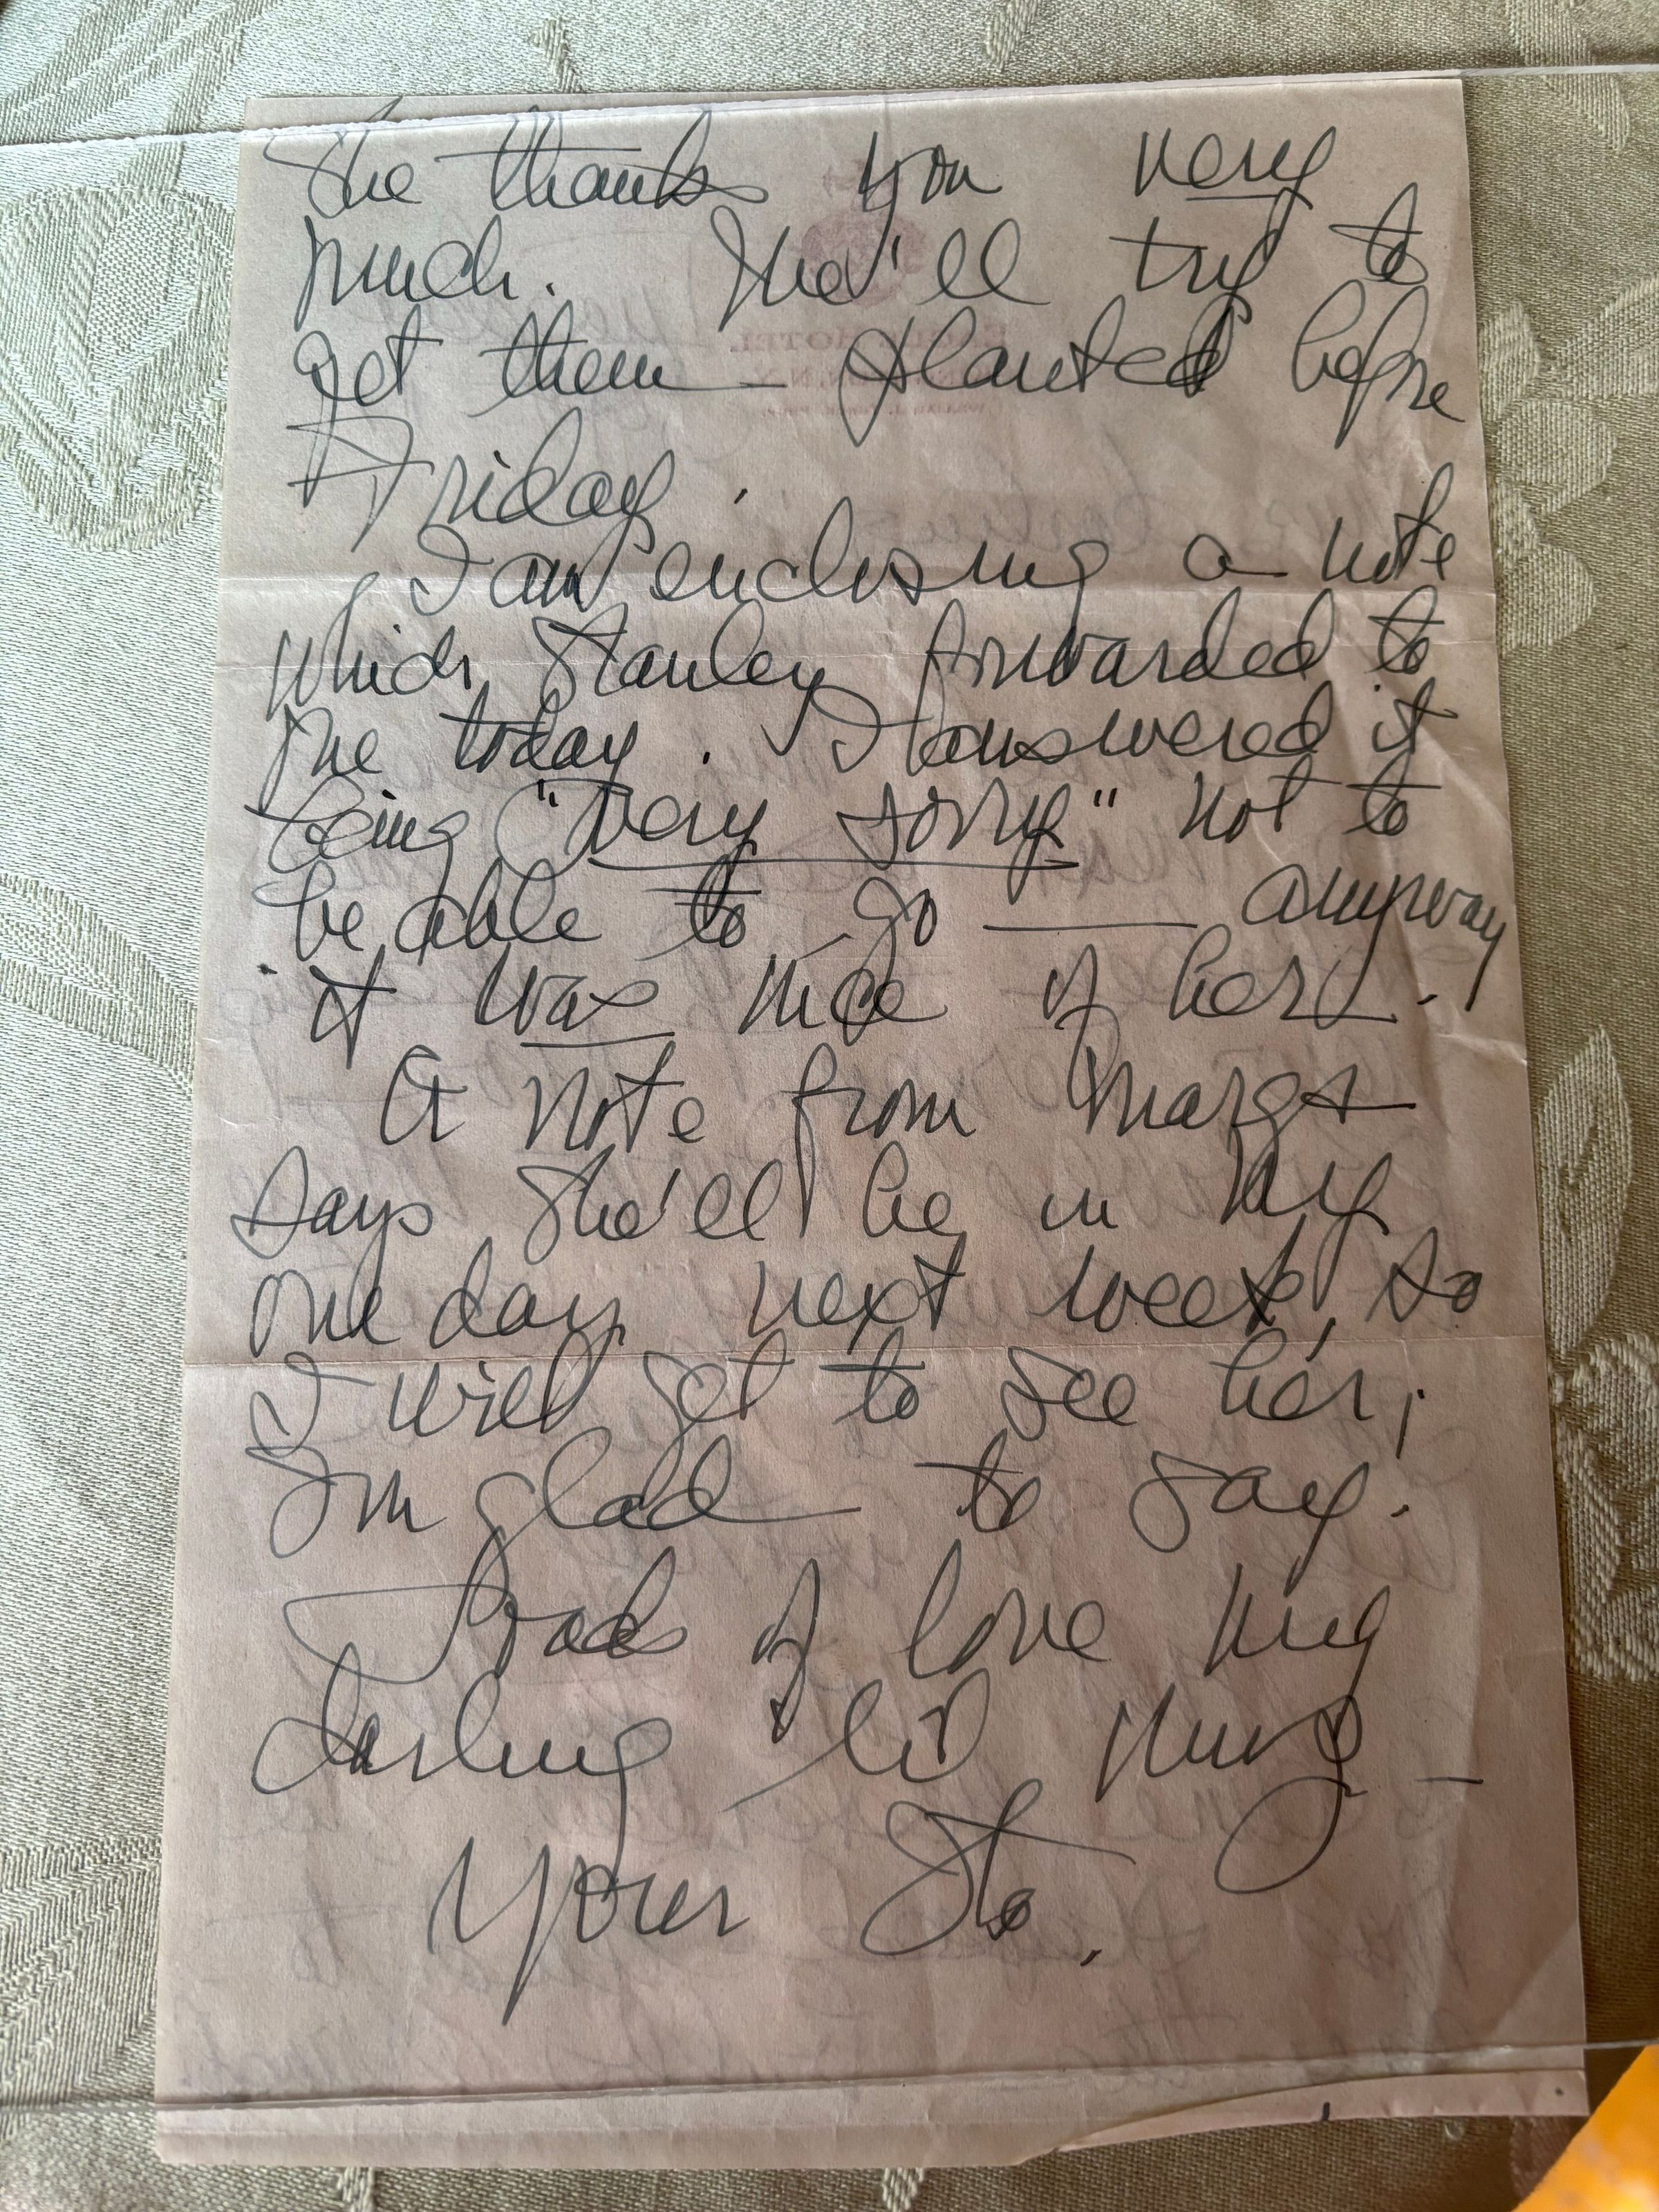 She thanks you very
much. She'll try to
get them planted before
Friday.
I am enclosing a note
which Stanley forwarded to
me today. I answered it
being "very sorry" not to
be able to go — anyway
it was nice of her.
A note from Marga
says she'll be in NY
one day next week, so
I will get to see her,
I'm glad to say.
Loads of love my
darling lil
Your Sto.
HOTEL
N.Y.